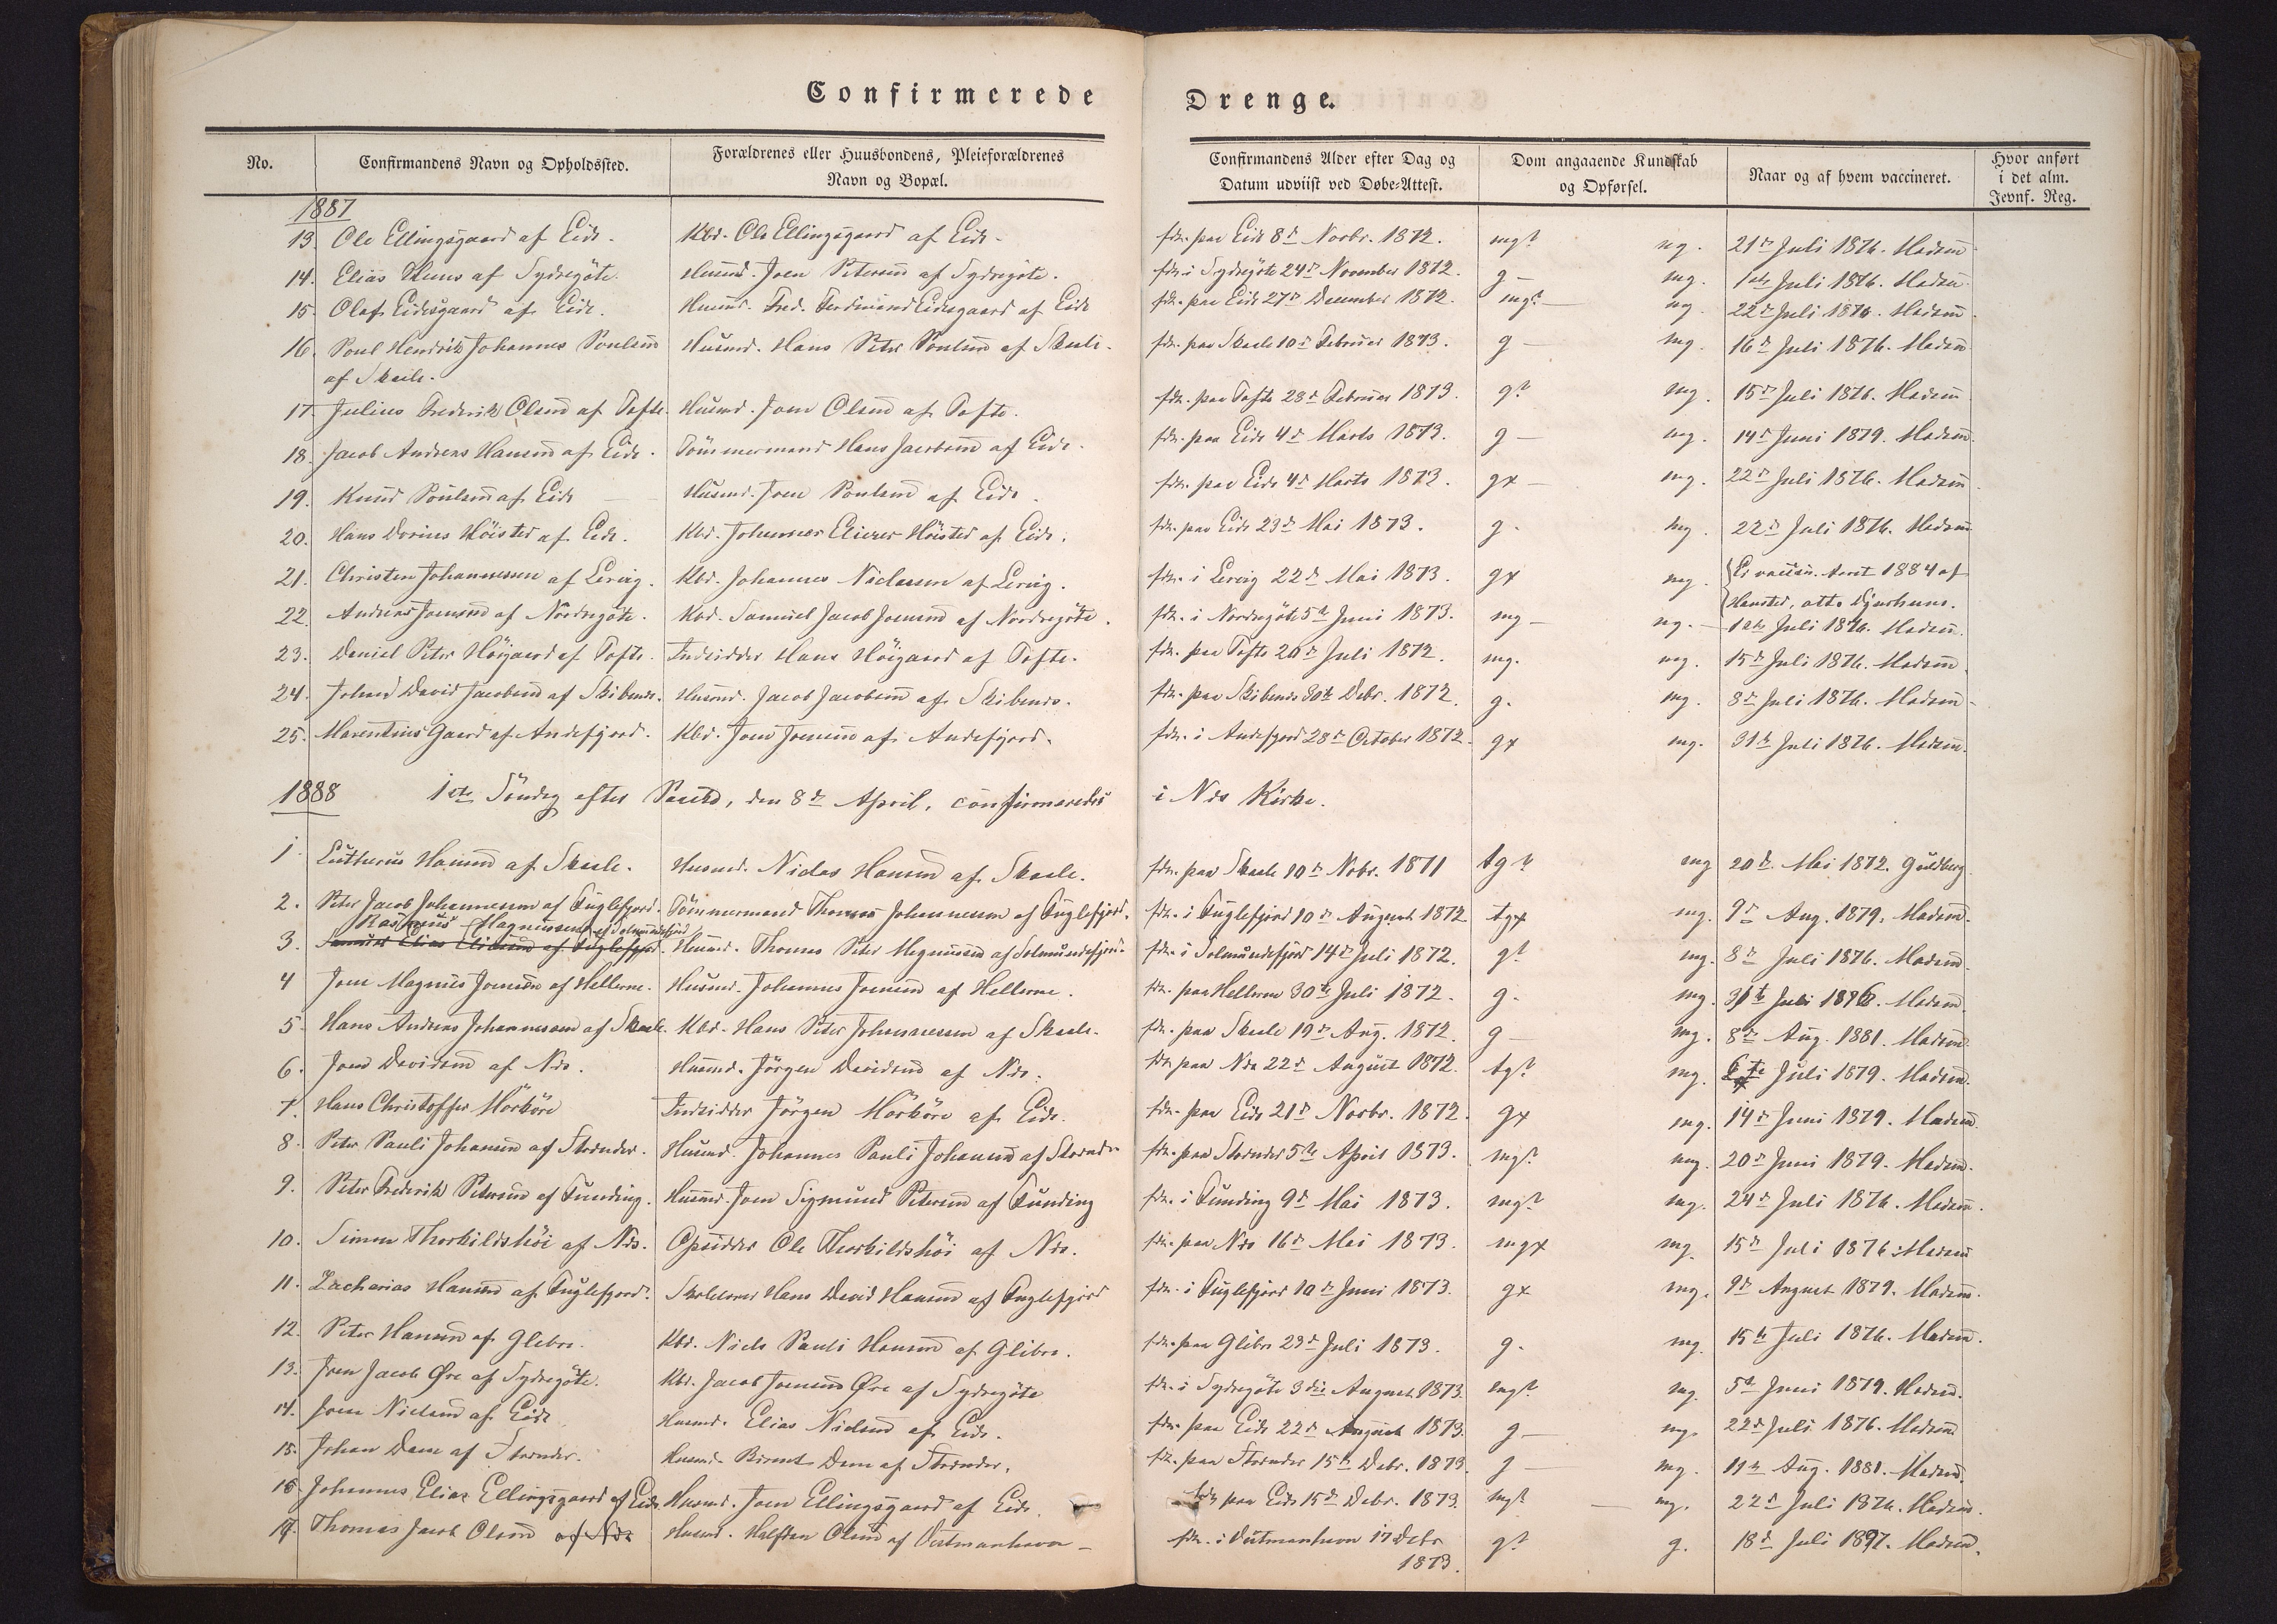 Confirmerede Drenge.
No. Confirmandens Navn og Opholdssted. Forældrenes eller Huusbondens, Pleieforældrenes Navn og Bopæl. Confirmandens Alder efter Dag og Datum udviist ved Døbe-Attest. Dom angaaende Kundskab og Opførsel. Naar og af hvem vaccineret. Hvor anført i det alm. Jevnf. Reg.
1887
13. Ole Ellingsgaard af Eide. Kbd. Ole Ellingsgaard af Eide. fdt. paa Eide 8d Novbr. 1872. mg? mg. 21d Juli 1876. Madsen
14. Elias Hans af Sydregöte. Husmd. Joen Petersen af Sydregöte. fdt. i Sydregöte 24d November 1872. g — mg. 1ste Juli 1876. Madsen
15. Olaf Eidesgaard af Eide. Husmd. Fred. Ferdinand Eidesgaard af Eide fdt. paa Eide 27d December 1872. mg? — mg 22d Juli 1876. Madsen
16. Poul Hendrik Johannes Poulsen Husmd. Hans Peter Poulsen af Skaale. fdt. paa Skaale 10d Februar 1873. g — mg. 16d Juli 1876. Madsen
af Skaale.
17. Julius Frederik Olsen af Tofte. Husmd. Joen Olsen af Tofte. fdt. paa Tofte 28d Februar 1873. g? mg. 15d Juli 1876. Madsen
18. Jacob Andreas Hansen af Eide. Tömmermand Hans Jacobsen af Eide. fdt. paa Eide 4d Marts 1873. g — mg. 14d Juni 1879. Madsen.
19. Knud Poulsen af Eide — Husmd. Joen Poulsen af Eide. fdt. paa Eide 4d Marts 1873. gx — mg. 22d Juli 1876. Madsen
20. Hans Dorius Höisted af Eide. Kbd. Johannes Elieser Höisted af Eide. fdt. paa Eide 23d Mai 1873. g. mg. 22d Juli 1876. Madsen
21. Christen Johannessen af Lervig. Kbd. Johannes Niclassen af Lervig. fdt. i Lervig 22d Mai 1873. gx mg. Er vaccin. 1884 af
Hansted, att.
22. Andreas Joensen af Nordregöte. Kbd. Samuel Jacob Joensen af Nordregöte. fdt. i Nordregöte 5te Juni 1873. mg — mg. — 1ste Juli 1876. Madsen.
23. Daniel Peter Höigaard af Tofte. Indsidder Hans Höigaard af Tofte. fdt. paa Tofte 20d Juli 1872. mg. mg. 15d Juli 1876. Madsen
24. Johan David Jacobsen af Skibenæs. Husmd. Jacob Jacobsen af Skibenæs. fdt. paa Skibenæs 30te Debr. 1872. g. mg. 8d Juli 1876. Madsen
25. Marentius Gaard af Andefjord. Kbd. Joen Joensen af Andefjord. fdt. i Andefjord 28d October 1872. gx mg. 31te Juli 1876. Madsen.
1888 1ste Söndag efter Paaske, den 8de April, confirmeredes i Næs Kirke.
1 Lutherus Hansen af Skaale. Husmd. Niclas Hansen af Skaale. fdt. paa Skaale 10d Nobr. 1871 tg? mg 20d Mai 1872. Guldberg
2. Peter Jacob Johannessen af Fuglefjord. Tömmermand Thomas Johannessen af Fuglefjord. fdt. i Fuglefjord 10d August 1872 tgx mg. 9d Aug. 1879. Madsen.
Rasmus Magnussen af Solmundefjord
3. Samuel Elias Eliasen af Fuglefjord. Husmd. Thomas Peter Magnussen af Solmundefjord. fdt. i Solmundefjord 14d Juli 1872. g? mg. 8d Juli 1876. Madsen.
4 Joen Magnus Joensen af Hellerne. Husmd. Johannes Joensen af Hellerne. fdt. paa Hellerne 30te Juli 1872. g. mg. 31te Juli 1876. Madsen
5. Hans Andreas Johannessen af Skaale. Kbd. Hans Peter Johannessen af Skaale. fdt. paa Skaale 19d Aug. 1872. g — mg. 8d Aug. 1881. Madsen
6. Joen Davidsen af Næs. Husmd. Jörgen Davidsen af Næs. fdt. paa Næs 22d August 1872. tg? mg. 6te Juli 1879. Madsen.
7. Hans Christoffer Mörköre Indsidder Jörgen Mörköre af Eide. fdt. paa Eide 21d Novbr. 1872. gx mg. 14d Juni 1879. Madsen.
8. Peter Pauli Johansen af Strænder. Husmd. Johannes Pauli Johansen af Strænder fdt. paa Strænder 5te April 1873. mg? mg. 20d Juni 1879. Madsen.
9. Peter Frederik Petersen af Funding. Husmd. Joen Sigmund Petersen af Funding fdt. i Funding 9d Mai 1873. mg? mg. 24d Juli 1876. Madsen.
10. Simon Thorkildshöi af Næs. Opsidder Ole Thorkildshöi af Næs. fdt. paa Næs 16d Mai 1873. mgx mg. 15d Juli 1876. Madsen
11. Zacharias Hansen af Fuglefjord. Skolelærer Hans David Hansen af Fuglefjord fdt. i Fuglefjord 10d Juni 1873. gx mg. 9d August 1879. Madsen.
12. Peter Hansen af Glibre. Kbd. Niels Pauli Hansen af Glibre. fdt. paa Glibre 23d Juli 1873. g. mg. 15te Juli 1876. Madsen.
13. Joen Jacob Øre af Sydregöte. Kbd. Jacob Joensen Øre af Sydregöte fdt. i Sydregöte 3die August 1873. mg? mg. 5te Juni 1879. Madsen.
14. Joen Nielsen af Eide Husmd. Elias Nielsen af Eide. fdt. paa Eide 22d August 1873. g — mg. 22d Juli 1876. Madsen
15. Johan Dam af Strænder. Husmd. Dam af Strænder. fdt. paa Strænder 15te Debr. 1873. g — mg. 11te Aug. 1881. Madsen.
16. Johannes Elias Ellingsgaard af Eide. Husmd. Joen Ellingsgaard af Eide. fdt. paa Eide 15d Debr. 1873. mg? — mg. 22d Juli 1876. Madsen.
17. Thomas Jacob Olsen af Næs Husmd. Halfden Olsen af Vestmanhavn — fdt. i Vestmanhavn 17 Debr g? g. 18d Juli 1897. Madsen.
1873.